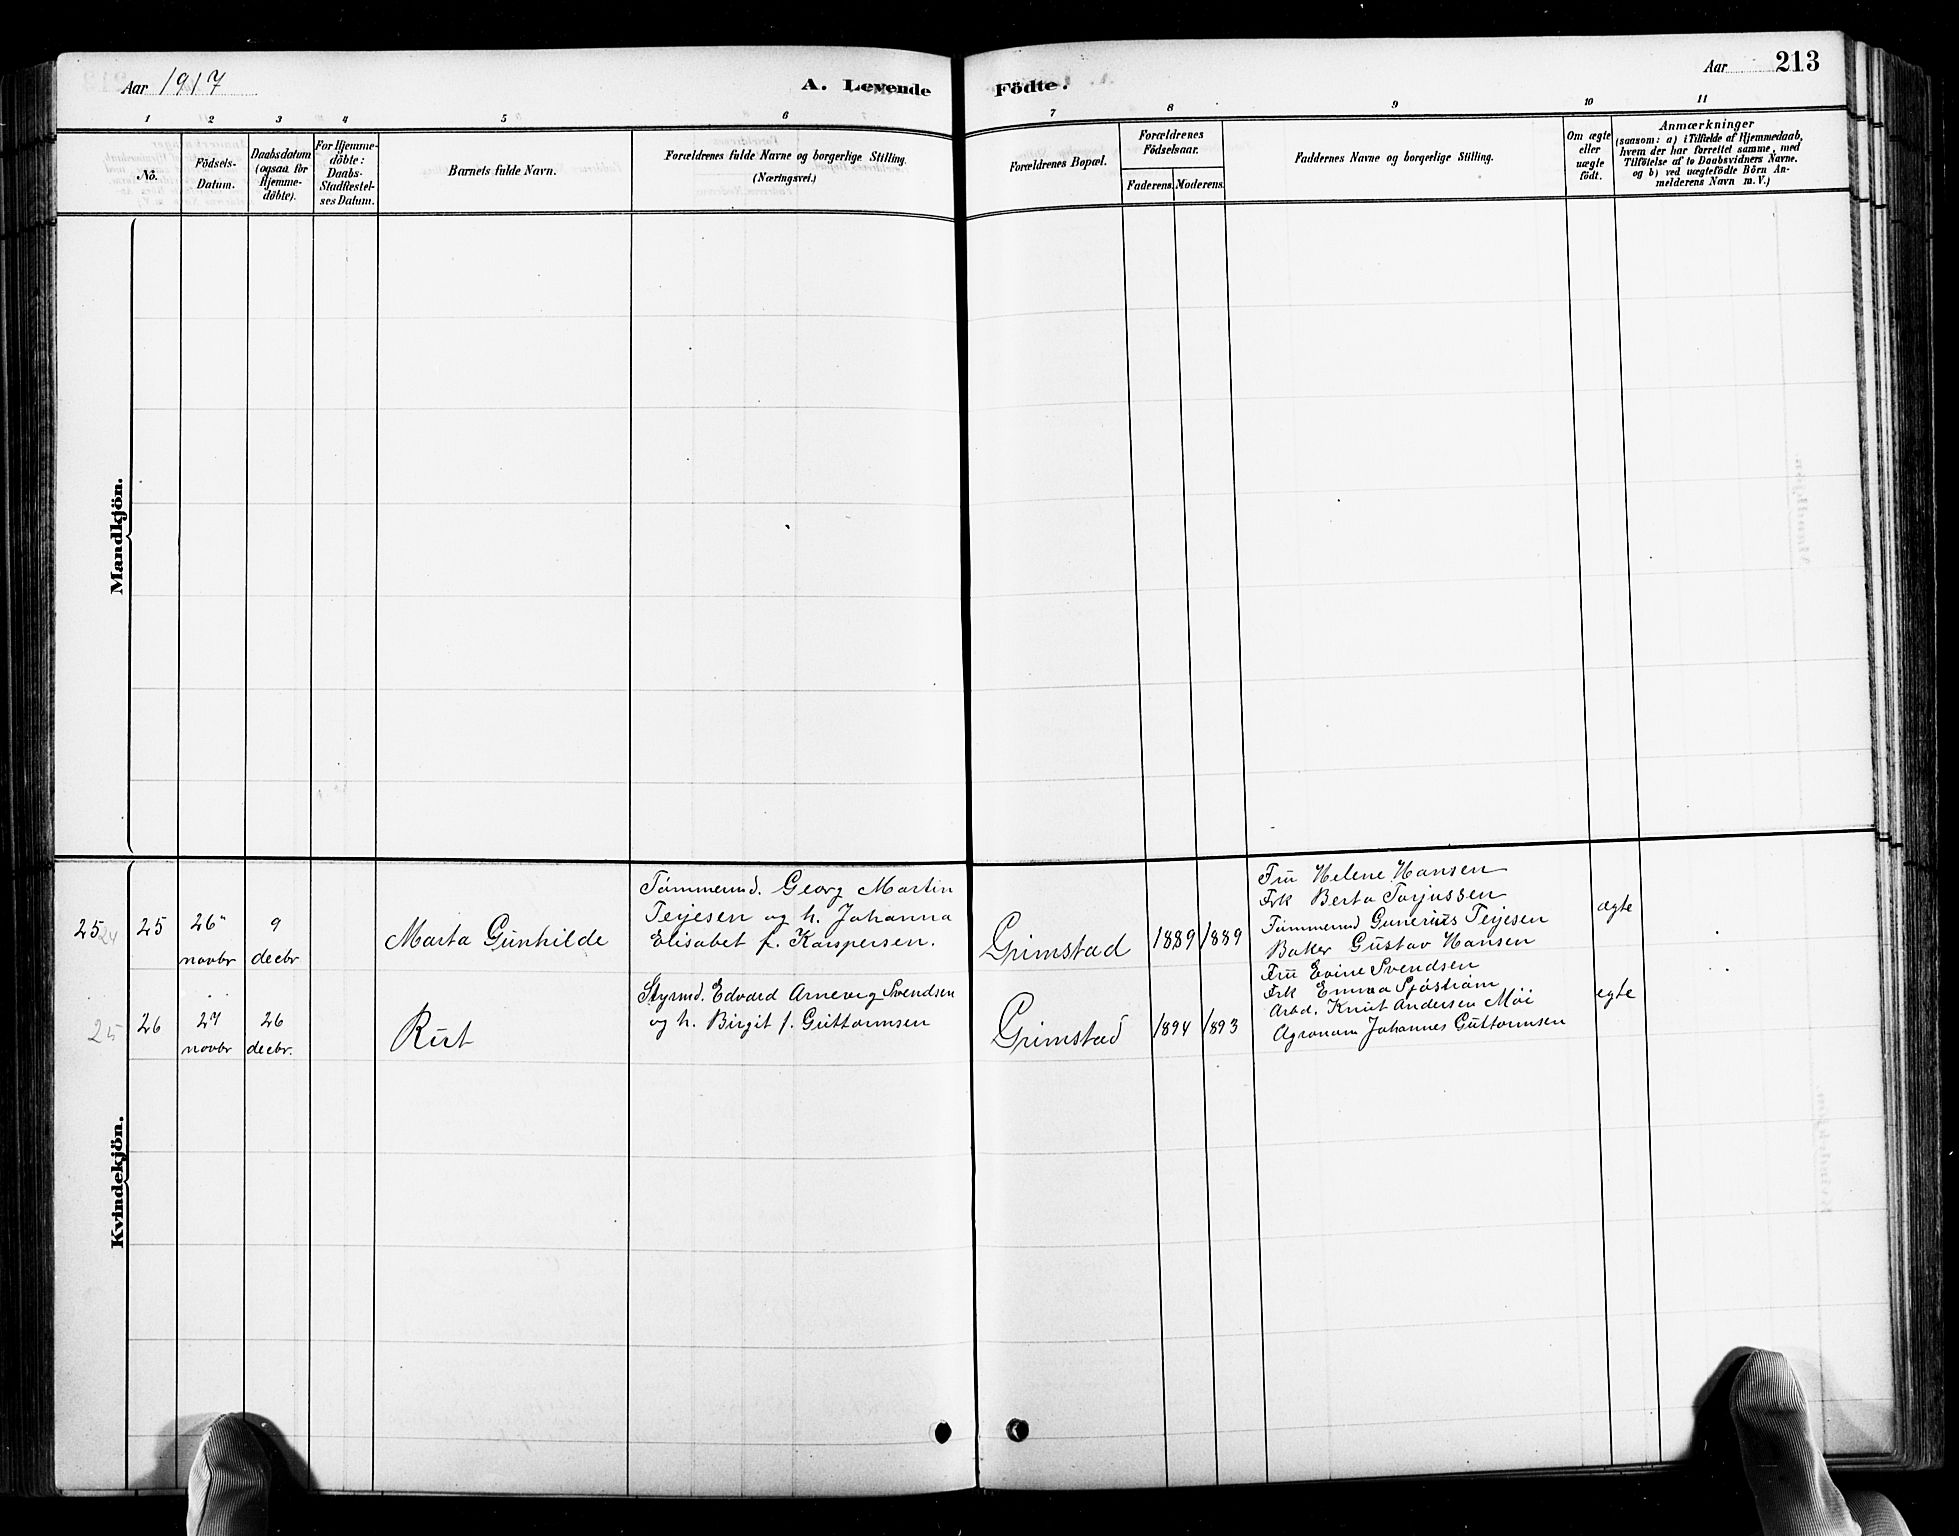 Aar 1917
A. Levende
Födte.
Aar
213
1 2 3 4 5 6 7 8 9 10 11
Nô.
Födsels-
Datum.
Daabsdatum
(ogsaa for
Hjemme-
döbte).
For Hjemme-
döbte:
Daabs-
Stadfæstel-
ses Datum.
Barnets fulde Navn.
Forældrenes fulde Navne og borgerlige Stilling.
(Næringsvei.)
Forældrenes Bopæl.
Forældrenes
Födselsaar.
Faderens.
Moderens.
Faddernes Navne og borgerlige Stilling.
Om ægte
eller
uægte
födt.
Anmærkninger
(saasom: a) i Tilfælde af Hjemmedaab,
hvem der har forrettet samme, med
Tilföielse af to Daabsvidners Navne.
og b) ved uægtefödte Börn An-
melderens Navn m. V.)
Mandkjön.
Kvindekjön.
25 24
25
26
novbr
9
decbr
Marta Gunhilde
Tømmermd. Georg Martin
Teijesen og h. Johanna
Elisabet f. Kaspersen.
Grimstad
1889
1889
Fru Helene Hansen
Frk Berta Torjussen
Tømmermd Gunerius Teijesen
Baker Gustav Hansen
ægte
25
26
27
novbr
26
decbr.
Rut
Styrmd. Edvard Arneveg Svendsen
og h. Birgit f. Guttormsen
Grimstad
1894
1893
Fru Evine Svendsen
Frk Emma Sjöström
Arbd. Knut Andersen Moi
Agronom Johannes Guttormsen
egte